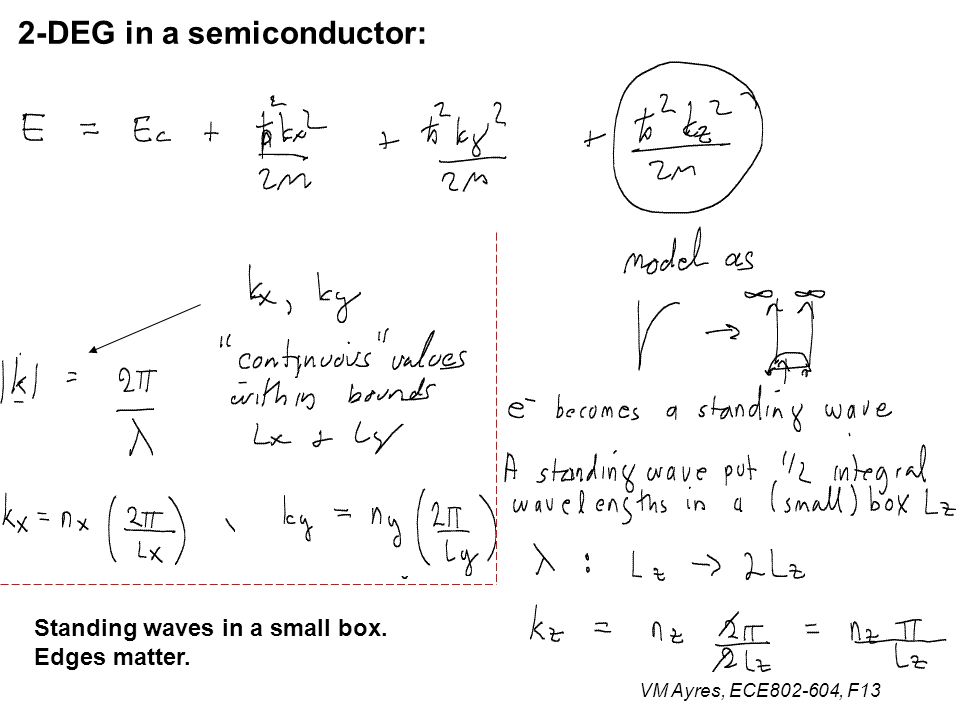 2-DEG in a semiconductor:
E = Ec + ħ²kx²/2m + ħ²ky²/2m + ħ²kz²/2m
kx, ky
"continuous" values
within bounds
Lx + Ly
|k| = 2π/λ
kx = nx (2π/Lx) , ky = ny (2π/Ly)
model as
→ ∞ ∞
e⁻ becomes a standing wave
A standing wave put 1/2 integral
wavelengths in a (small) box Lz
λ : Lz → 2Lz
kz = nz 2π/2Lz = nz π/Lz
Standing waves in a small box.
Edges matter.
VM Ayres, ECE802-604, F13